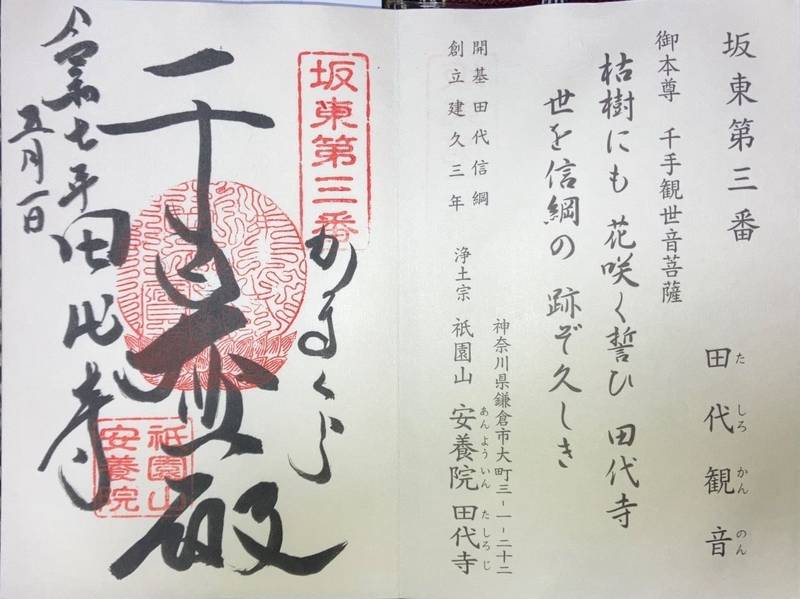 坂東第三番 田代観音
た しろ かん のん
御本尊 千手観世音菩薩
枯樹にも 花咲く誓ひ 田代寺
世を信綱の 跡ぞ久しき
開基田代信綱
創立建久三年
神奈川県鎌倉市大町三-一-二十二
浄土宗 祇園山 安養院 田代寺
あんよういん たしろじ
坂東第三番
かまくら
大悲殿
令和七年
五月一日
田代寺
祇園山
安養院